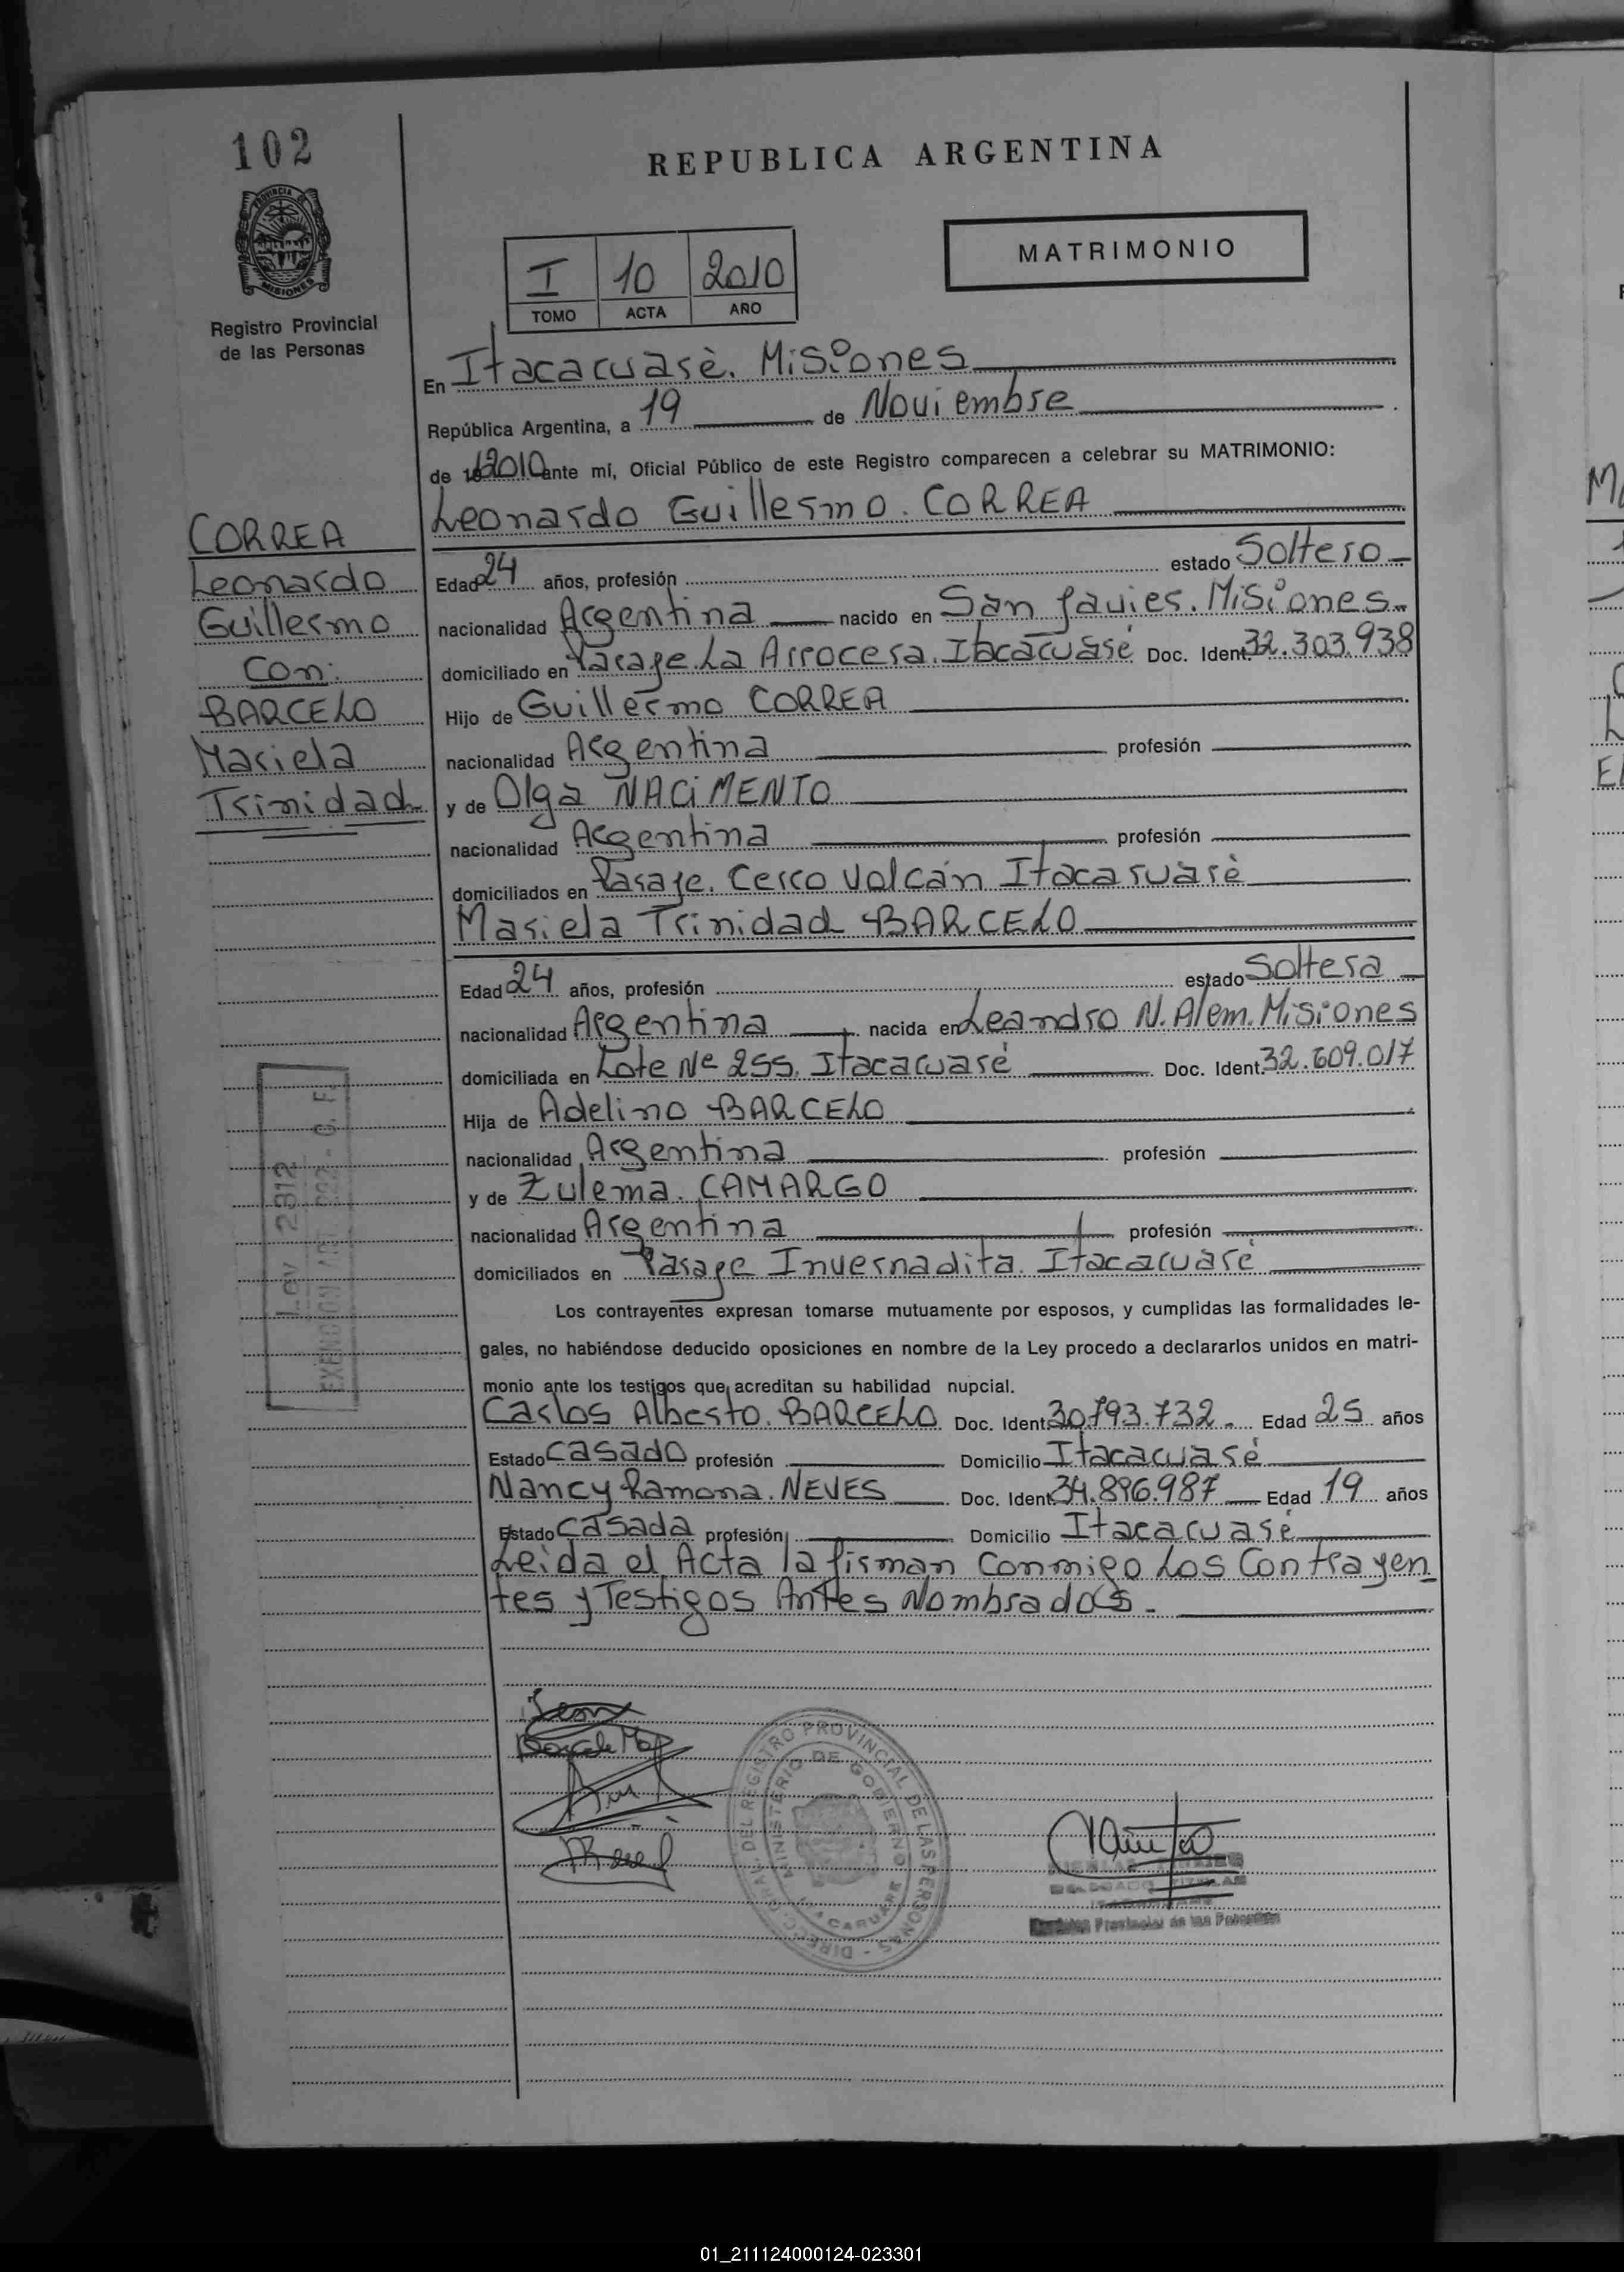 102
REPUBLICA ARGENTINA
PROVINCIA DE
MISIONES
Registro Provincial
de las Personas
MATRIMONIO
I 10 2010
TOMO ACTA AÑO
En Itacaruarè. Misiones
República Argentina, a 19 de Noviembre
de 2010 ante mí, Oficial Público de este Registro comparecen a celebrar su MATRIMONIO:
Leonardo Guillermo. CORREA
CORREA
Leonardo
Guillermo
con:
BARCELO
Mariela
Trinidad
Edad 24 años, profesión estado Soltero
nacionalidad Argentina nacido en San Javier. Misiones
domiciliado en Paraje. La Arrocera. Itacaruaré Doc. Ident. 32.303.938
Hijo de Guillermo CORREA
nacionalidad Argentina profesión
y de Olga NACIMENTO
nacionalidad Argentina profesión
domiciliados en Paraje. Cerro Volcán Itacaruarè
Mariela Trinidad BARCELO
Edad 24 años, profesión estado Soltera
nacionalidad Argentina nacida en Leandro N. Alem. Misiones
domiciliada en Lote Nº 255. Itacaruaré Doc. Ident. 32.609.017
Hija de Adelino BARCELO
nacionalidad Argentina profesión
y de Zulema. CAMARGO
nacionalidad Argentina profesión
domiciliados en Paraje Invernadita. Itacaruaré
Ley 2812
Los contrayentes expresan tomarse mutuamente por esposos, y cumplidas las formalidades le-
gales, no habiéndose deducido oposiciones en nombre de la Ley procedo a declararlos unidos en matri-
monio ante los testigos que acreditan su habilidad nupcial.
Carlos Alberto. BARCELO Doc. Ident. 30.793.732 Edad 25 años
Estado casado profesión Domicilio Itacaruaré
Nancy Ramona. NEVES Doc. Ident. 34.896.987 Edad 19 años
Estado casada profesión Domicilio Itacaruaré
Leida el Acta la firman conmigo Los Contrayen
tes y Testigos Antes Nombrados.
DIREC. GRAL. DEL REGISTRO PROVINCIAL DE LAS PERSONAS
MINISTERIO DE GOBIERNO
Provincial de las Personas
01_211124000124-023301